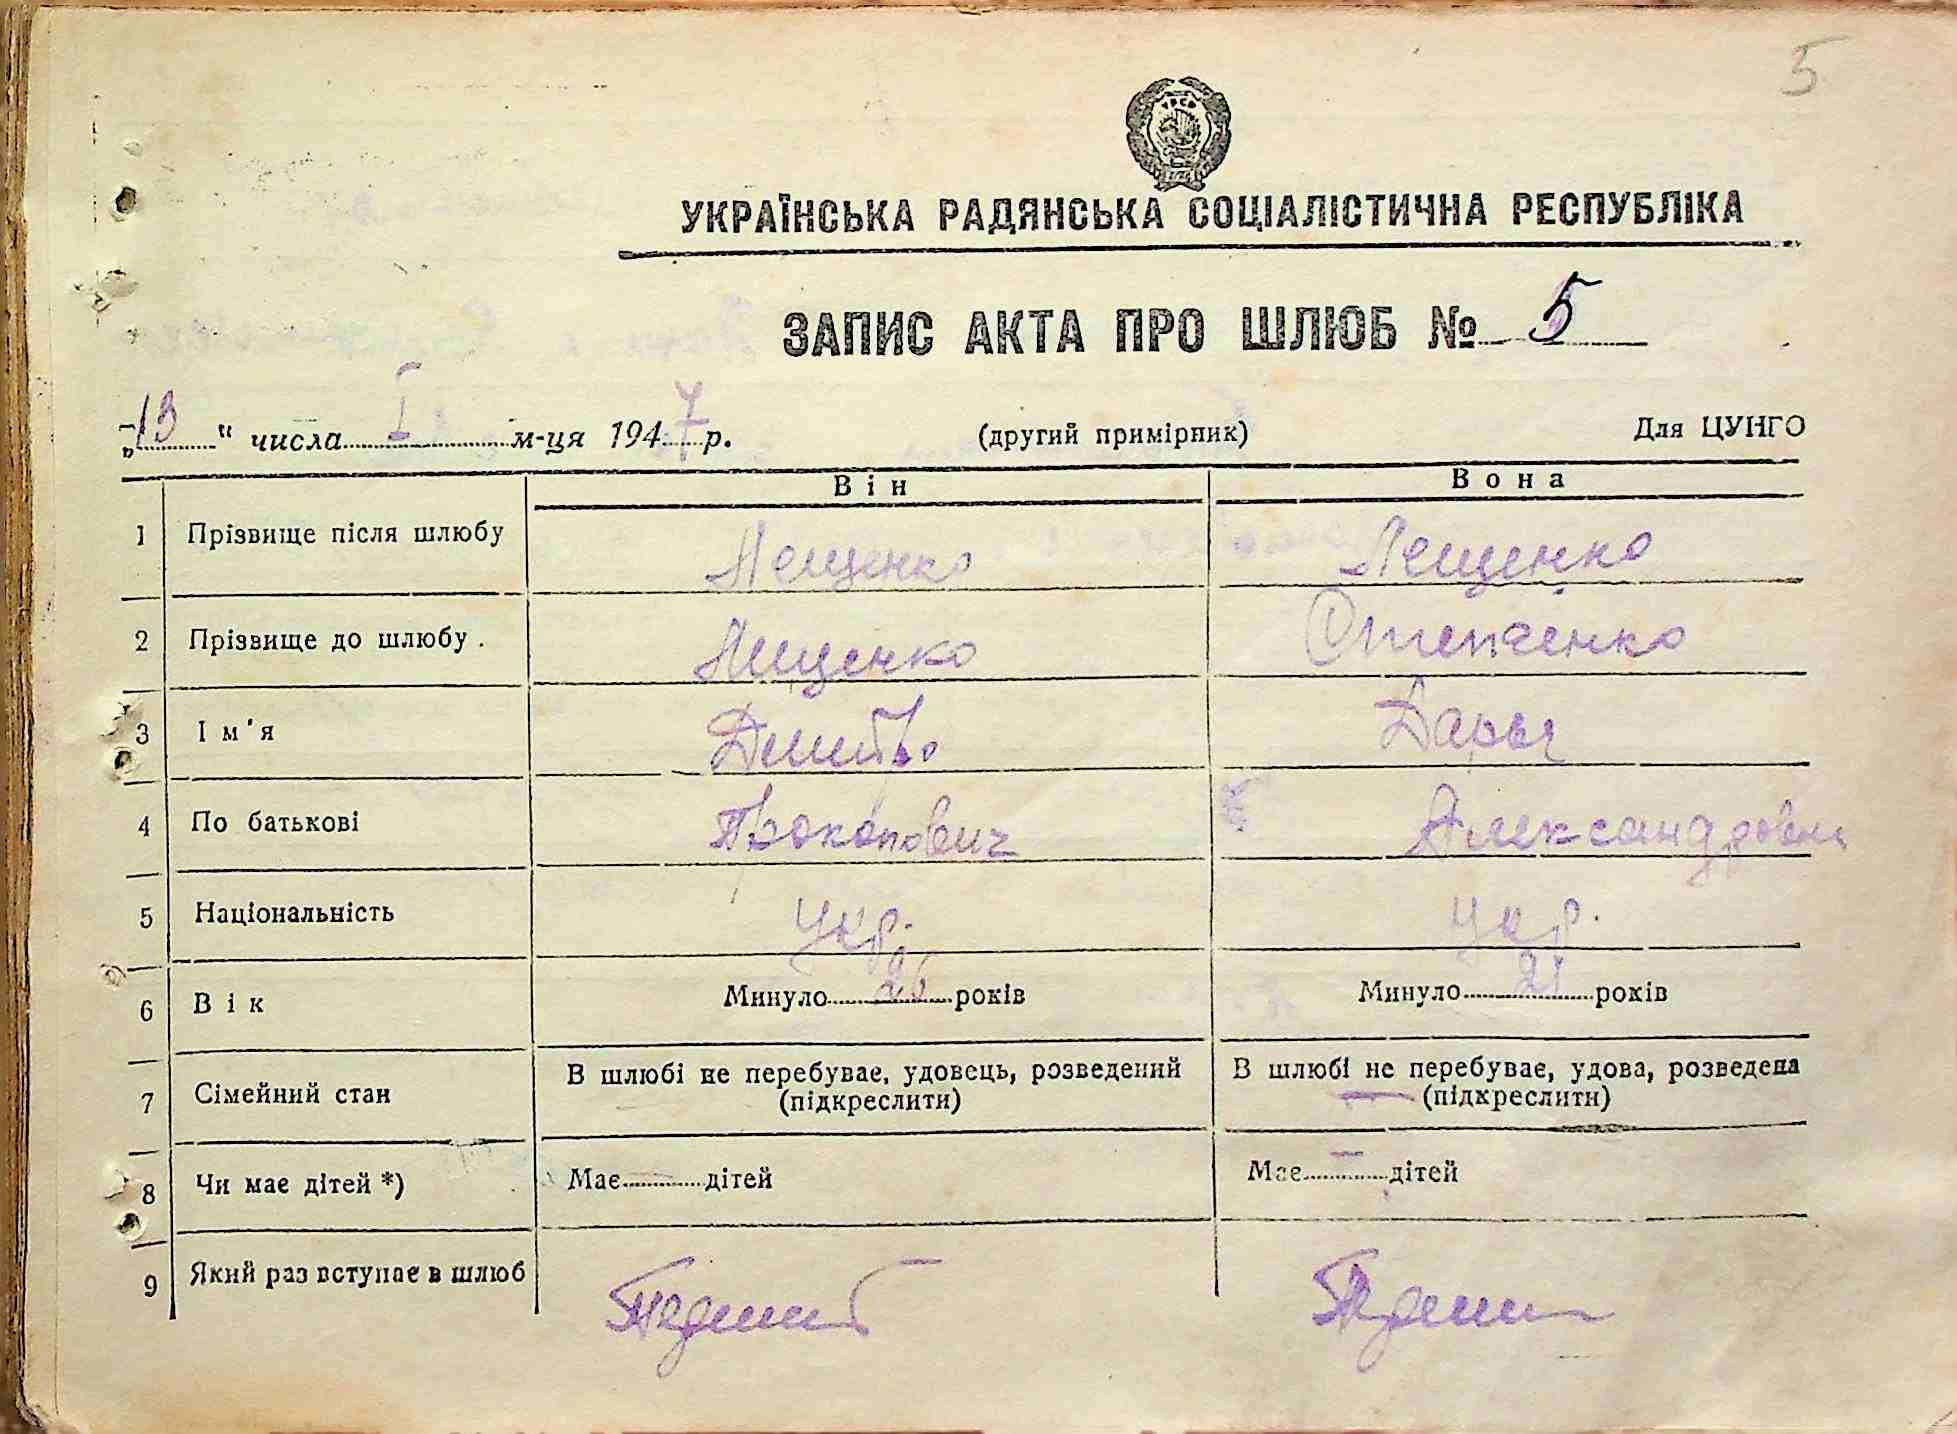 5
УРСР
УКРАЇНСЬКА РАДЯНСЬКА СОЦІАЛІСТИЧНА РЕСПУБЛІКА
ЗАПИС АКТА ПРО ШЛЮБ № 5
„13“ числа I м-ця 1947 р. (другий примірник) Для ЦУНГО
Він Вона
1 Прізвище після шлюбу Лещенко Лещенко
2 Прізвище до шлюбу . Лещенко Степченко
3 Ім'я Дмитро Дарья
4 По батькові Прокопович Александровна
5 Національність Укр. Укр.
6 Вік Минуло 26 років Минуло 21 років
7 Сімейний стан В шлюбі не перебуває, удовець, розведений (підкреслити) В шлюбі не перебуває, удова, розведена (підкреслити)
8 Чи має дітей *) Має — дітей Має — дітей
9 Який раз вступає в шлюб